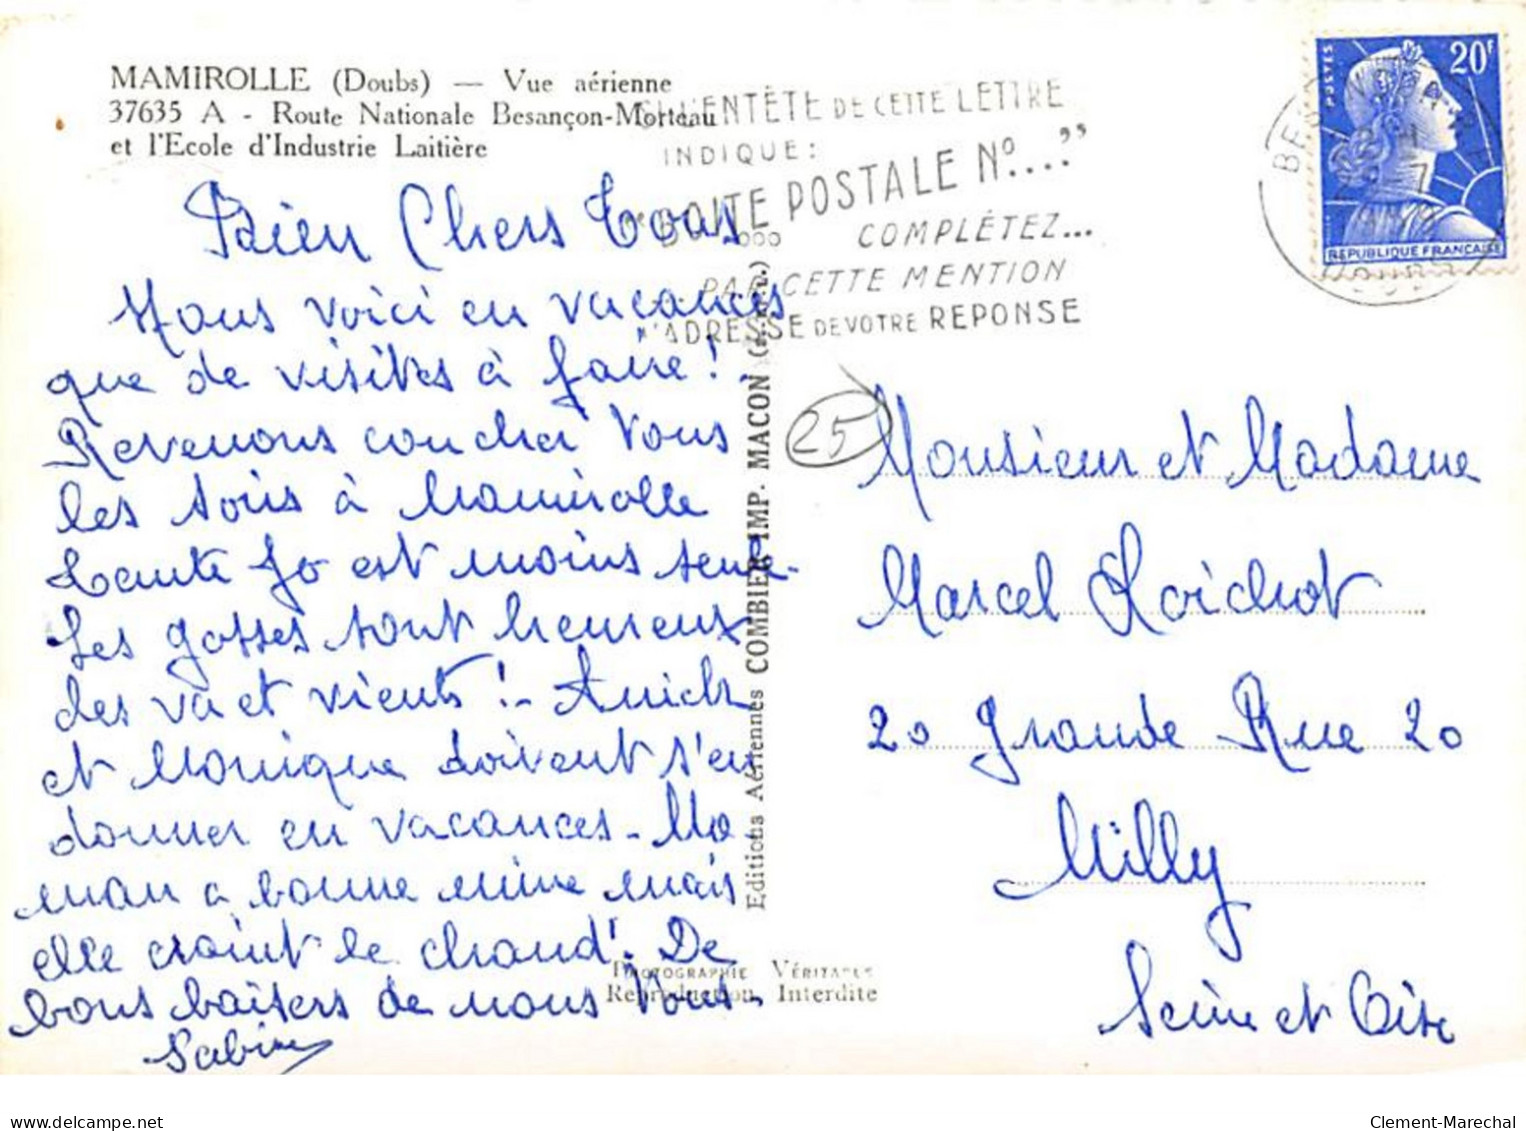 MAMIROLLE (Doubs) — Vue aérienne
37635 A - Route Nationale Besançon-Morteau
et l'Ecole d'Industrie Laitière
SI L'ENTÊTE DE CETTE LETTRE
INDIQUE:
"BOITE POSTALE N°...."
COMPLÉTEZ...
PAR CETTE MENTION
L'ADRESSE DE VOTRE REPONSE
POSTES
20F
REPUBLIQUE FRANÇAISE
DOUBS
Bien Chers Tous
Nous voici en vacances
que de visites à faire!
Revenons coucher tous
les soirs à Mamirolle
Tante Jo est moins seule.
Les gosses sont heureux
des va et vients!- Annick
et Monique doivent s'en
donner en vacances - Ma
man a bonne mine mais
elle craint le chaud! De
bons baisers de nous tous -
Sabine
Editions Aériennes COMBIER IMP. MACON
PHOTOGRAPHIE VÉRITABLE
Reproduction Interdite
25
Monsieur et Madame
Marcel Roichot
20 Grande Rue 20
Milly
Seine et Oise
Clement-Marechal